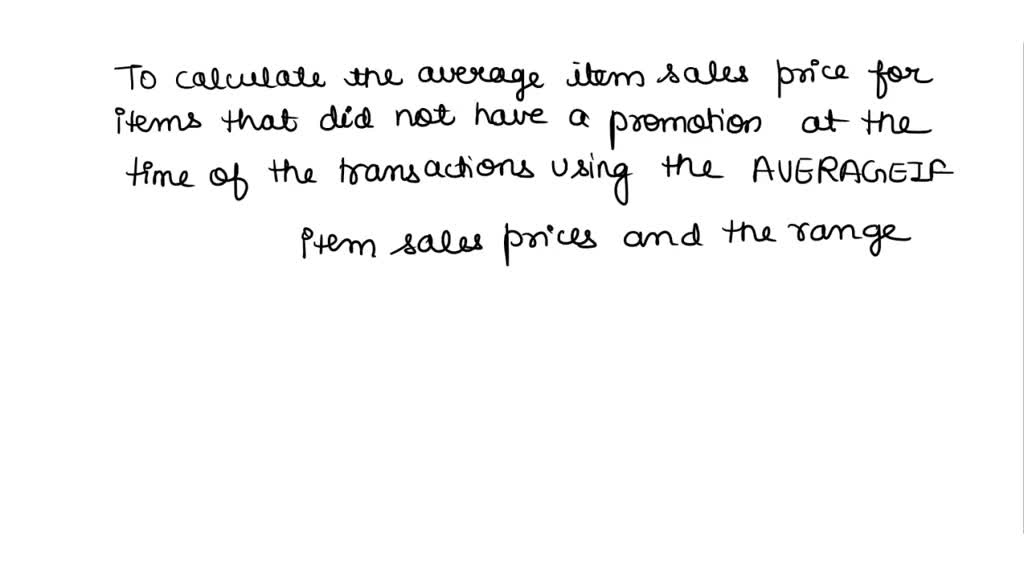 To calculate the average item sales price for
items that did not have a promotion at the
time of the transactions using the AVERAGEIF
item sales prices and the range